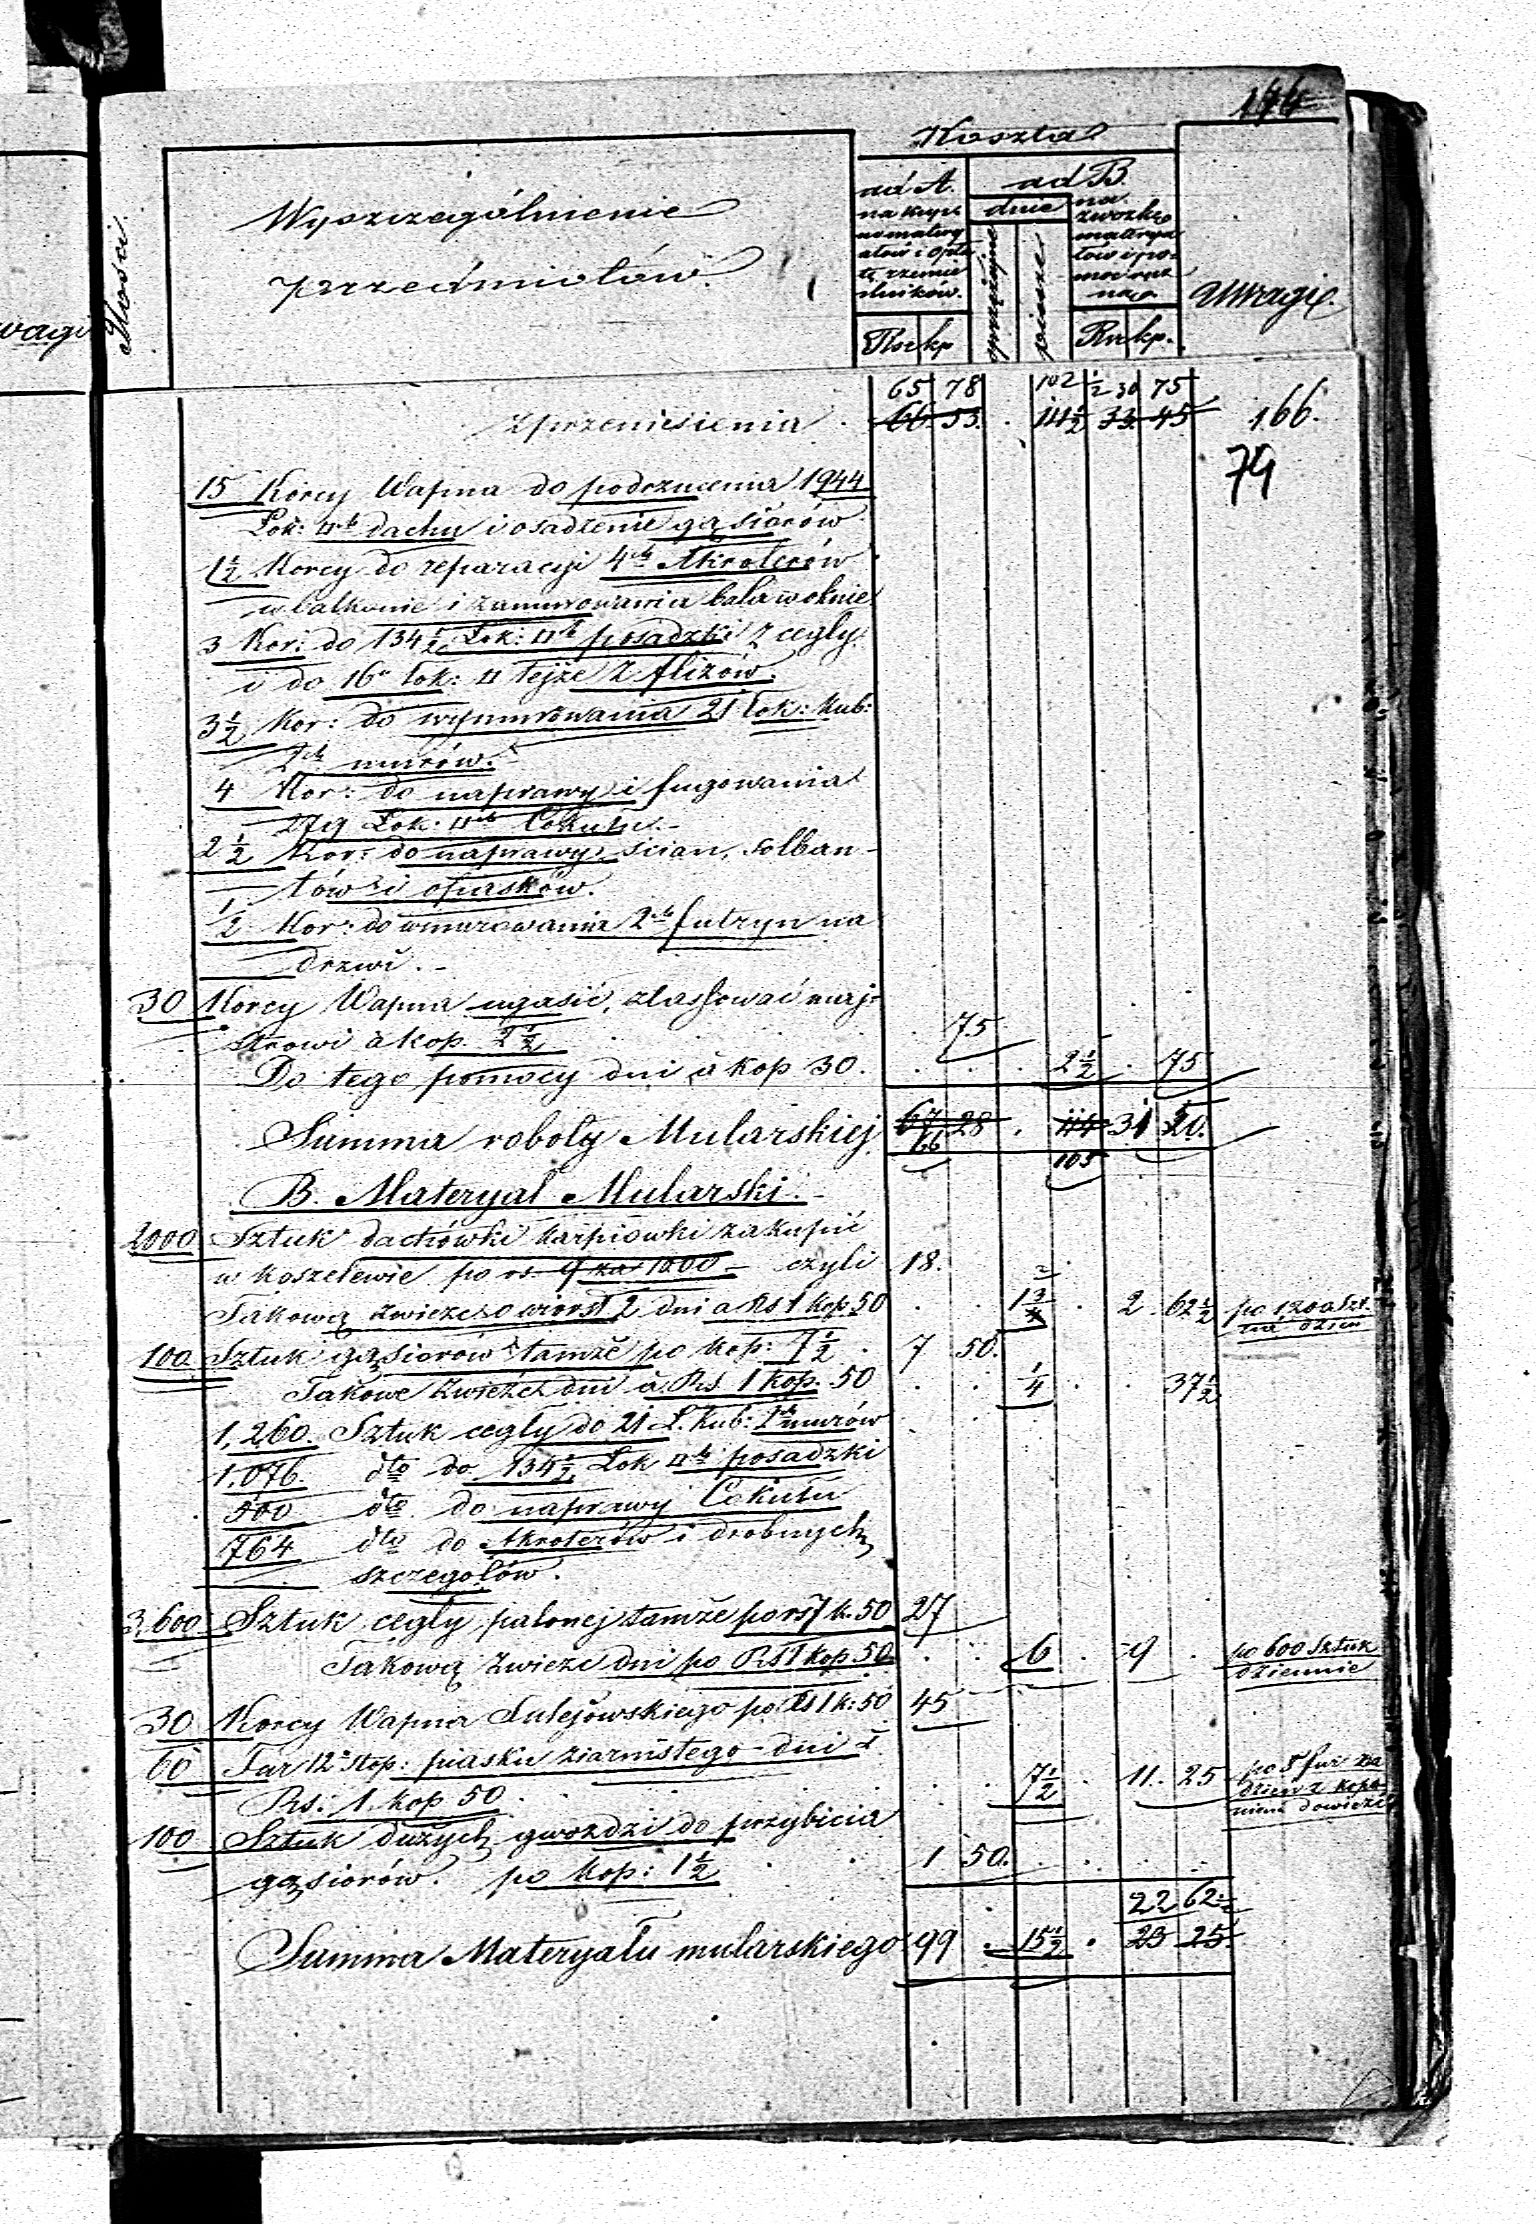 144
Koszta
Ilości
Wyszczególnienie
przedmiotów.
ad A.
na kupno materyałów i opłatę rzemieślników.
ad B.
dnie
sprzężajne
piesze
na zwozkę materyałów i pomoc ręczną
Uwagie
Rsr kp
Rsr kp.
wagi
65 78 102 1/2 30 75
z przeniesienia . 66 53 . 111 1/2 33 45 166.
79
15 Korcy Wapna do podrzucenia 1944
Łok: □ch dachu i osadzenie gąsiorów
1 1/2 Korcy do reparacyi 4ch Akroterów
w balkonie i zamurowania bala w oknie
3 Kor: do 134 1/2 Łok: □ch posadzki z cegły
i do 16u łok: □ tejże z flizów.
3 1/2 Kor: do wymurowania 21 łok: kub:
2ch murów.
4 Kor: do naprawy i fugowania
279 Łok: □ch Cokułu.-
2 1/2 Kor: do naprawy ścian, solban-
tów i opasków.
1/2 Kor: do wmurowania 2ch futryn na
drzwi. -
30 Korcy Wapna ugasić, zlassować maj-
strowi à kop. 2 1/2 . 75
Do tego pomocy dni à kop 30. . . . 2 1/2 . 75
Summa roboty Mularskiej 67 28 . 114 31 50.
66 105
B. Materyał Mularski.-
2000 Sztuk dachówki karpiowki zakupić
w Koszelewie po rs. 9 za 1000 - czyli 18.
Takową zwieźć o wiorst 2 dni a Rs 1 kop 50 . . 1 3/4 . 2 . 62 1/2 po 1200 Szt. na dzień
100 Sztuk gąsiorów tamże po kop: 7 1/2 . 7 50.
Takowe zwieźć dni à Rs 1 kop. 50 . . 1/4 . . 37 1/2
1,260. Sztuk cegły do 21 Ł. kub: 2ch murów
1.076. dto do 134 1/2 Łok □ch posadzki
500 dto. do naprawy Cokułu
764 dto do Akroterów i drobnych
szczegołów.
3,600 Sztuk cegły palonej tamże po rs 7 k. 50 27
Takową zwieźć dni po Rs 1 kop 50 . . 6 . 9 . po 600 Sztuk
dziennie
30 Korcy Wapna Sulejowskiego po Rs 1 k: 50 45
60 Fur 12u stop: piasku ziarnistego - dni à
Rs: 1. kop 50 . . . 7 1/2 . 11. 25 po 8 fur na
dzień z kopa-
niem dowieźć
100 Sztuk dużych gwozdzi do przybicia
gąsiorów. po kop: 1 1/2 . . 1 50.
22 62 1/2
Summa Materyału mularskiego 99 . 15 1/2 . 23 25